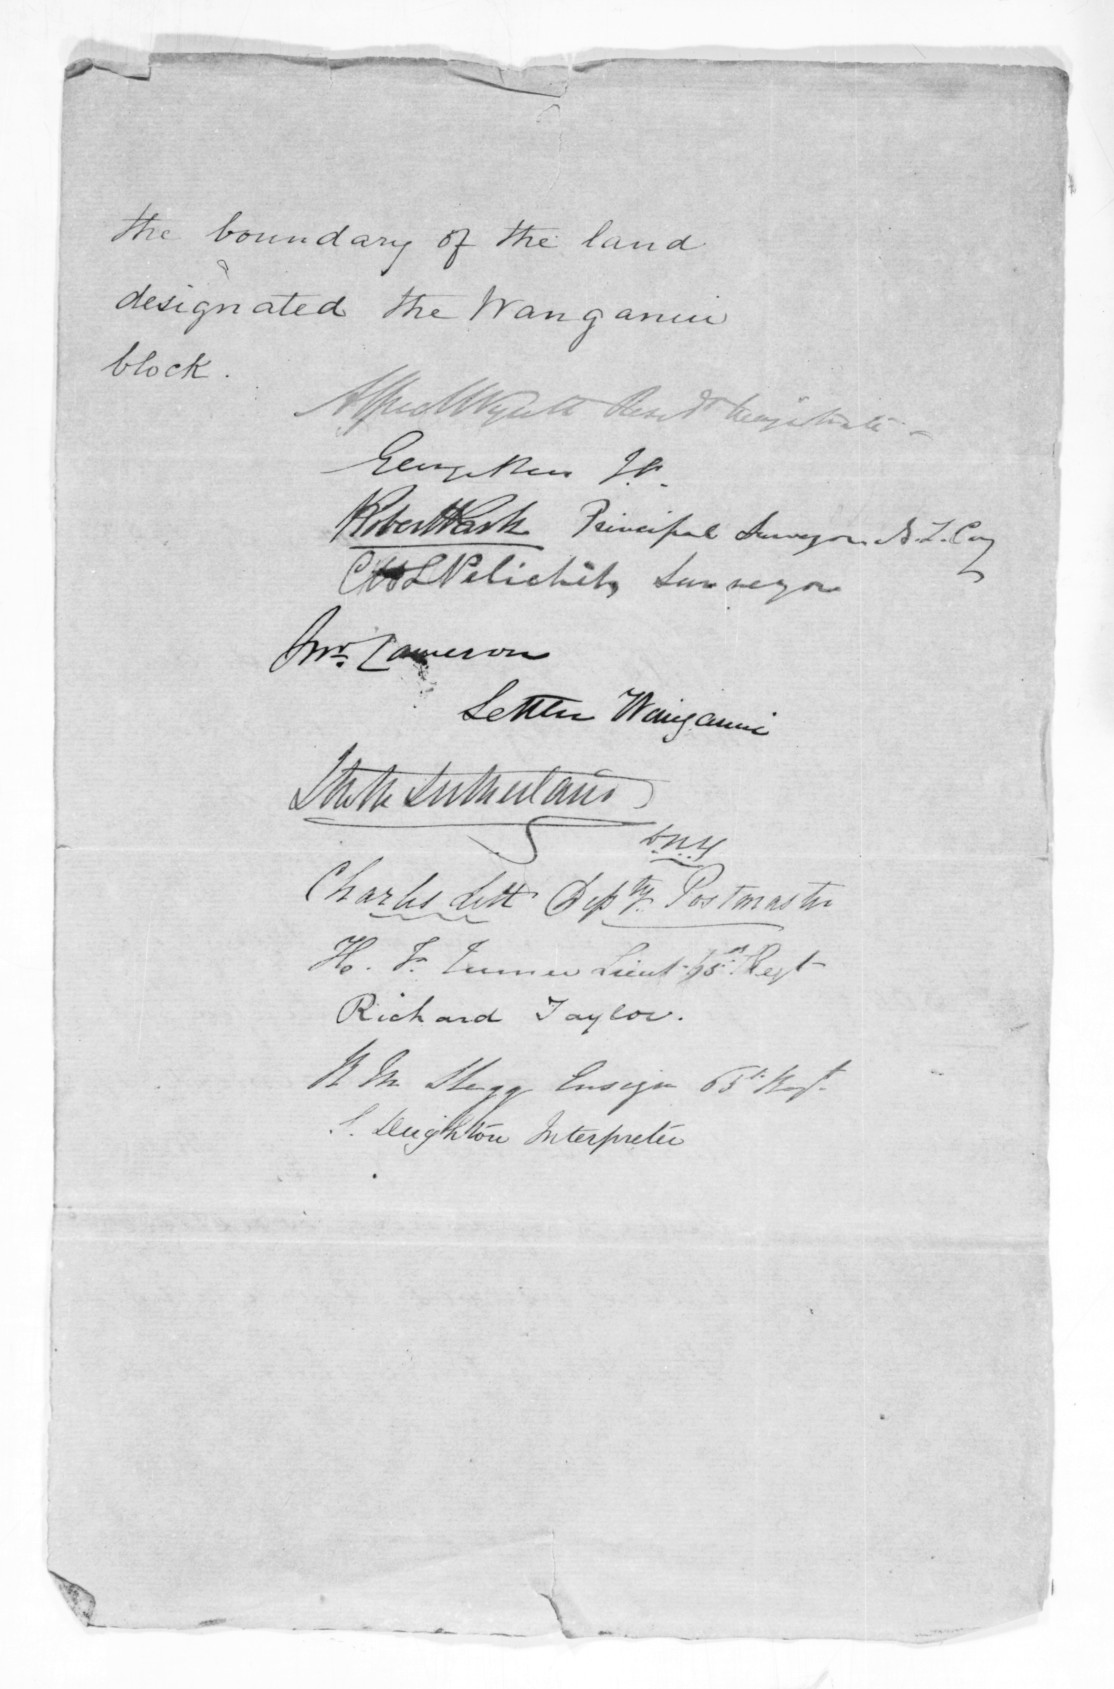 the boundary of the land
designated the Wanganui
block.
Alfred Wyatt Resdt Magistrate
George Rees J.P.
Robert Park Principal Surveyor N.Z. Coy
Chs L Pelichet, Surveyor
Jno. Cameron
Settler Wanganui
Sutherland
Charles Lett Depty. Postmaster
H. F. Turner Lieut. 65th Regt
Richard Taylor.
Ensign 65th Regt.
S. Deighton Interpreter